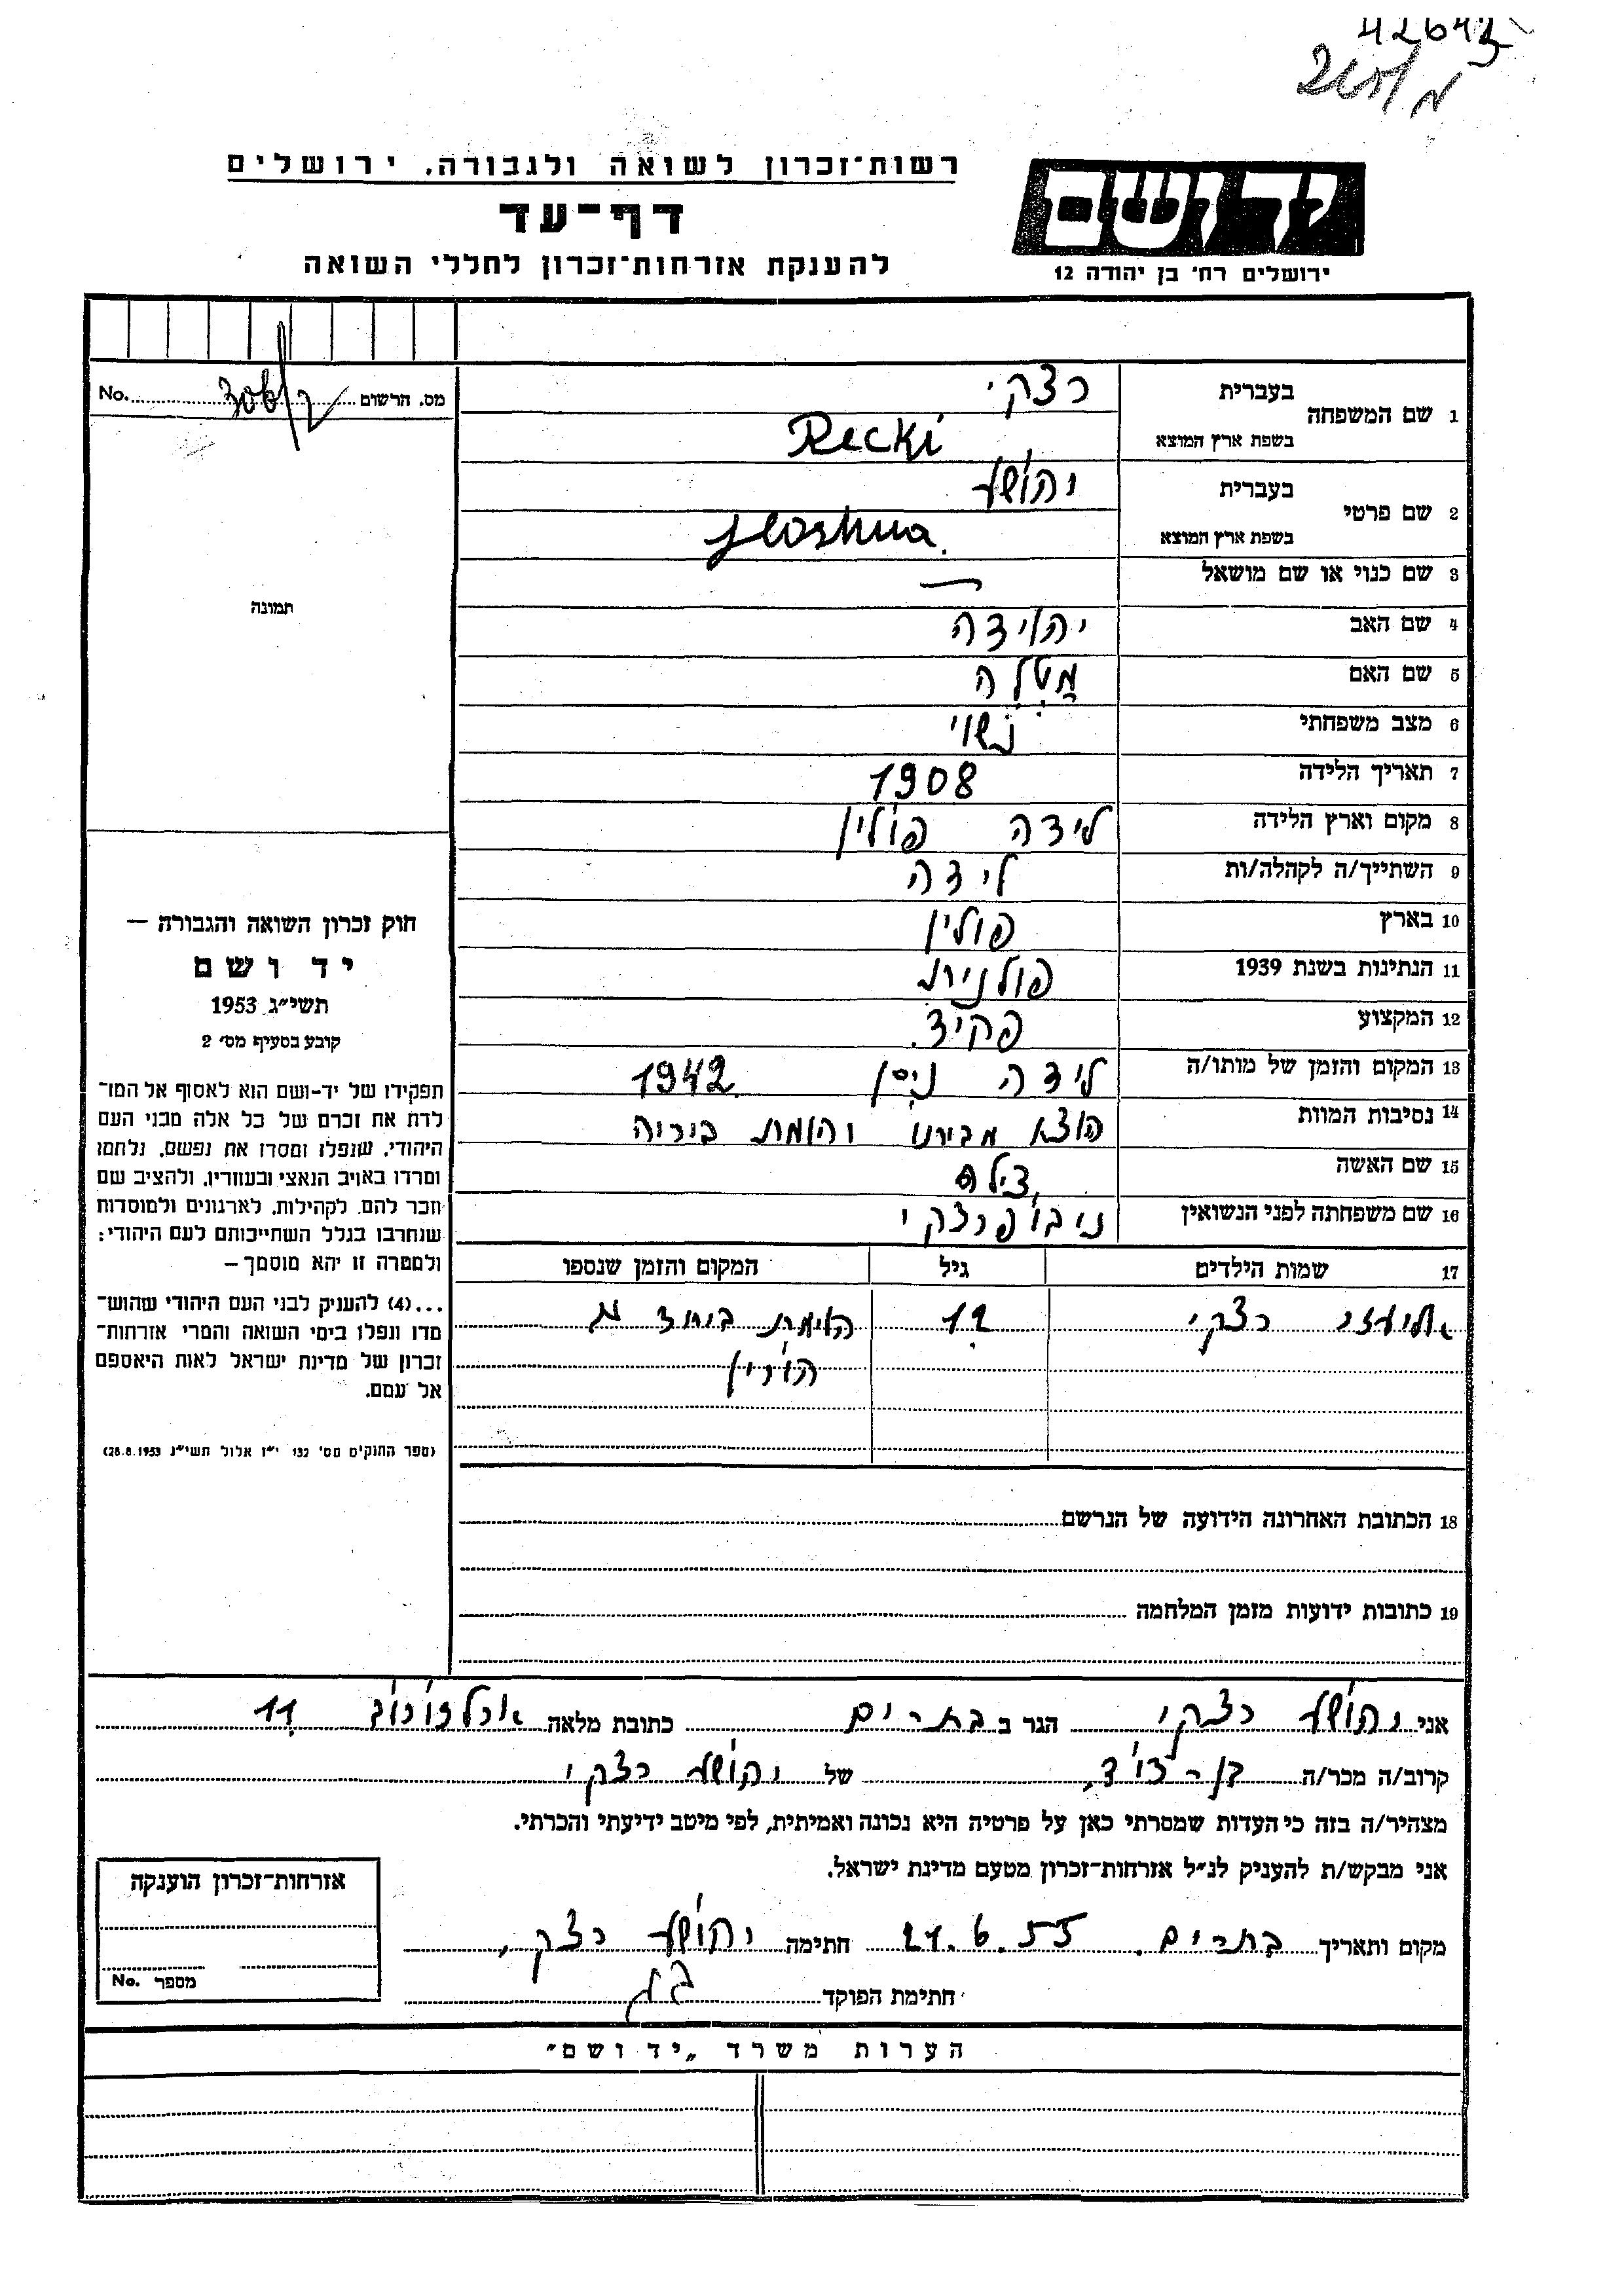 42643
רשות־זכרון לשואה ולגבורה, ירושלים
דף־עד
להענקת אזרחות־זכרון לחללי השואה
יד ושם
ירושלים רח׳ בן יהודה 12
מס. הרשום No.
1 שם המשפחה בעברית רצקי
בשפת ארץ המוצא Recki
2 שם פרטי בעברית יהושע
בשפת ארץ המוצא
3 שם כנוי או שם מושאל —
4 שם האב יהודה
5 שם האם
6 מצב משפחתי נשוי
7 תאריך הלידה 1908
8 מקום וארץ הלידה לידה פולין
9 השתייך/ה לקהלה/ות לידה
10 בארץ פולין
11 הנתינות בשנת 1939 פולנית
12 המקצוע פקיד.
13 המקום והזמן של מותו/ה לידה ניסן 1942
14 נסיבות המוות הוצא מביתו והומת ביריה
15 שם האשה צילה
16 שם משפחתה לפני הנשואין
17 שמות הילדים גיל המקום והזמן שנספו
רצקי 12 הומת ביחד עם
הורין
18 הכתובת האחרונה הידועה של הנרשם
19 כתובות ידועות מזמן המלחמה
תמונה
חוק זכרון השואה והגבורה –
יד ושם
תשי״ג 1953
קובע בסעיף מס׳ 2
תפקידו של יד-ושם הוא לאסוף אל המו־
לדת את זכרם של כל אלה מבני העם
היהודי, שנפלו ומסרו את נפשם, נלחמו
ומרדו באויב הנאצי ובעוזריו, ולהציב שם
וזכר להם, לקהילות, לארגונים ולמוסדות
שנחרבו בגלל השתייכותם לעם היהודי;
ולמטרה זו יהא מוסמך –
...(4) להעניק לבני העם היהודי שהוש־
מדו ונפלו בימי השואה והמרי אזרחות־
זכרון של מדינת ישראל לאות היאספם
אל עמם.
(ספר החוקים מס׳ 132 י״ז אלול תשי״ג 28.8.1953)
אני יהושע רצקי הגר ב בת־ים כתובת מלאה 11
קרוב/ה מכר/ה בן-דוד של יהושע רצקי
מצהיר/ה בזה כי העדות שמסרתי כאן על פרטיה היא נכונה ואמיתית, לפי מיטב ידיעתי והכרתי.
אני מבקש/ת להעניק לנ״ל אזרחות־זכרון מטעם מדינת ישראל.
מקום ותאריך בת־ים. 21.6.55 חתימה יהושע רצקי
חתימת הפוקד
אזרחות־זכרון הוענקה
מספר No.
הערות משרד „יד ושם״